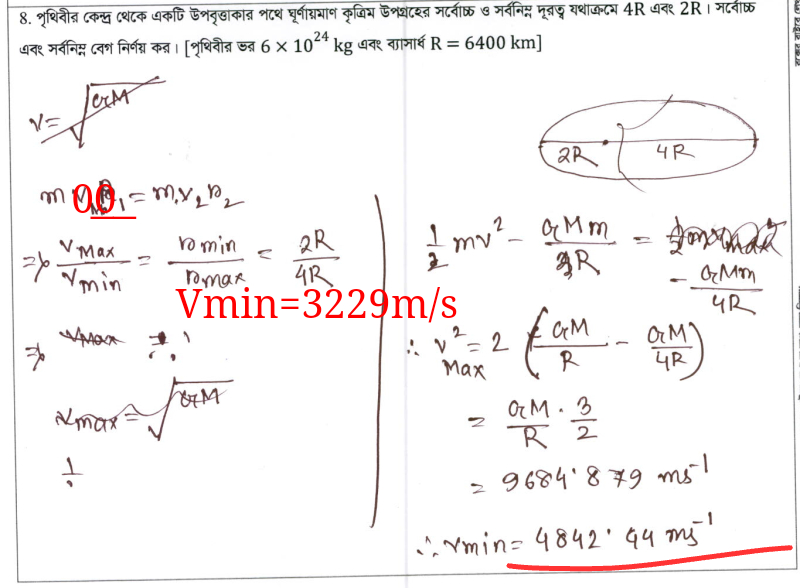 8. পৃথিবীর কেন্দ্র থেকে একটি উপবৃত্তাকার পথে ঘূর্ণায়মাণ কৃত্রিম উপগ্রহের সর্বোচ্চ ও সর্বনিম্ন দূরত্ব যথাক্রমে 4R এবং 2R। সর্বোচ্চ
এবং সর্বনিম্ন বেগ নির্ণয় কর। [পৃথিবীর ভর 6 × 10^24 kg এবং ব্যাসার্ধ R = 6400 km]
v = √GM
2R 4R
00
= m₁v₂r₂
⇒ vMax/vmin = rmin/rmax = 2R/4R
Vmin=3229m/s
⇒ vMax =
vmax = √GM
1/2 mv² − GMm/R = − GMm/4R
∴ v²Max = 2 (GM/R − GM/4R)
= GM/R · 3/2
= 9684.879 ms⁻¹
∴ vmin = 4842.44 ms⁻¹